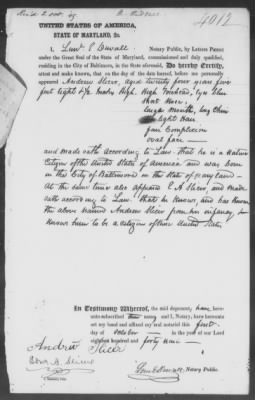 4012
UNITED STATES OF AMERICA,
STATE OF MARYLAND, Sc.
I, Duvall Notary Public, by Letters Patent
under the Great Seal of the State of Maryland, commissioned and duly qualified,
residing in the City of Baltimore, in the State aforesaid, Do hereby Certify,
attest and make known, that on the day of the date hereof, before me personally
appeared Andrew Sleer, Aged twenty four years five
feet eight inches high, High Forehead, Eyes Blue
Short Nose
Large Mouth, Long Chin
light Hair
fair Complexion
oval face
and made oath according to Law that he is a Native
Citizen of the United States of America and was born
in the City of Baltimore in the State of Maryland
At the same time also appeared A Sleer, and made
oath according to Law that he knows and has known
the above named Andrew Sleer from his infancy &
knows him to be a citizen of the United States,
In Testimony Whereof, the said deponents have
hereunto subscribed their names and I, Notary, have hereunto
set my hand and affixed my seal notarial this first
day of October in the year of our Lord
eighteen hundred and forty nine
Andrew Sleer
Duvall, Notary Public.